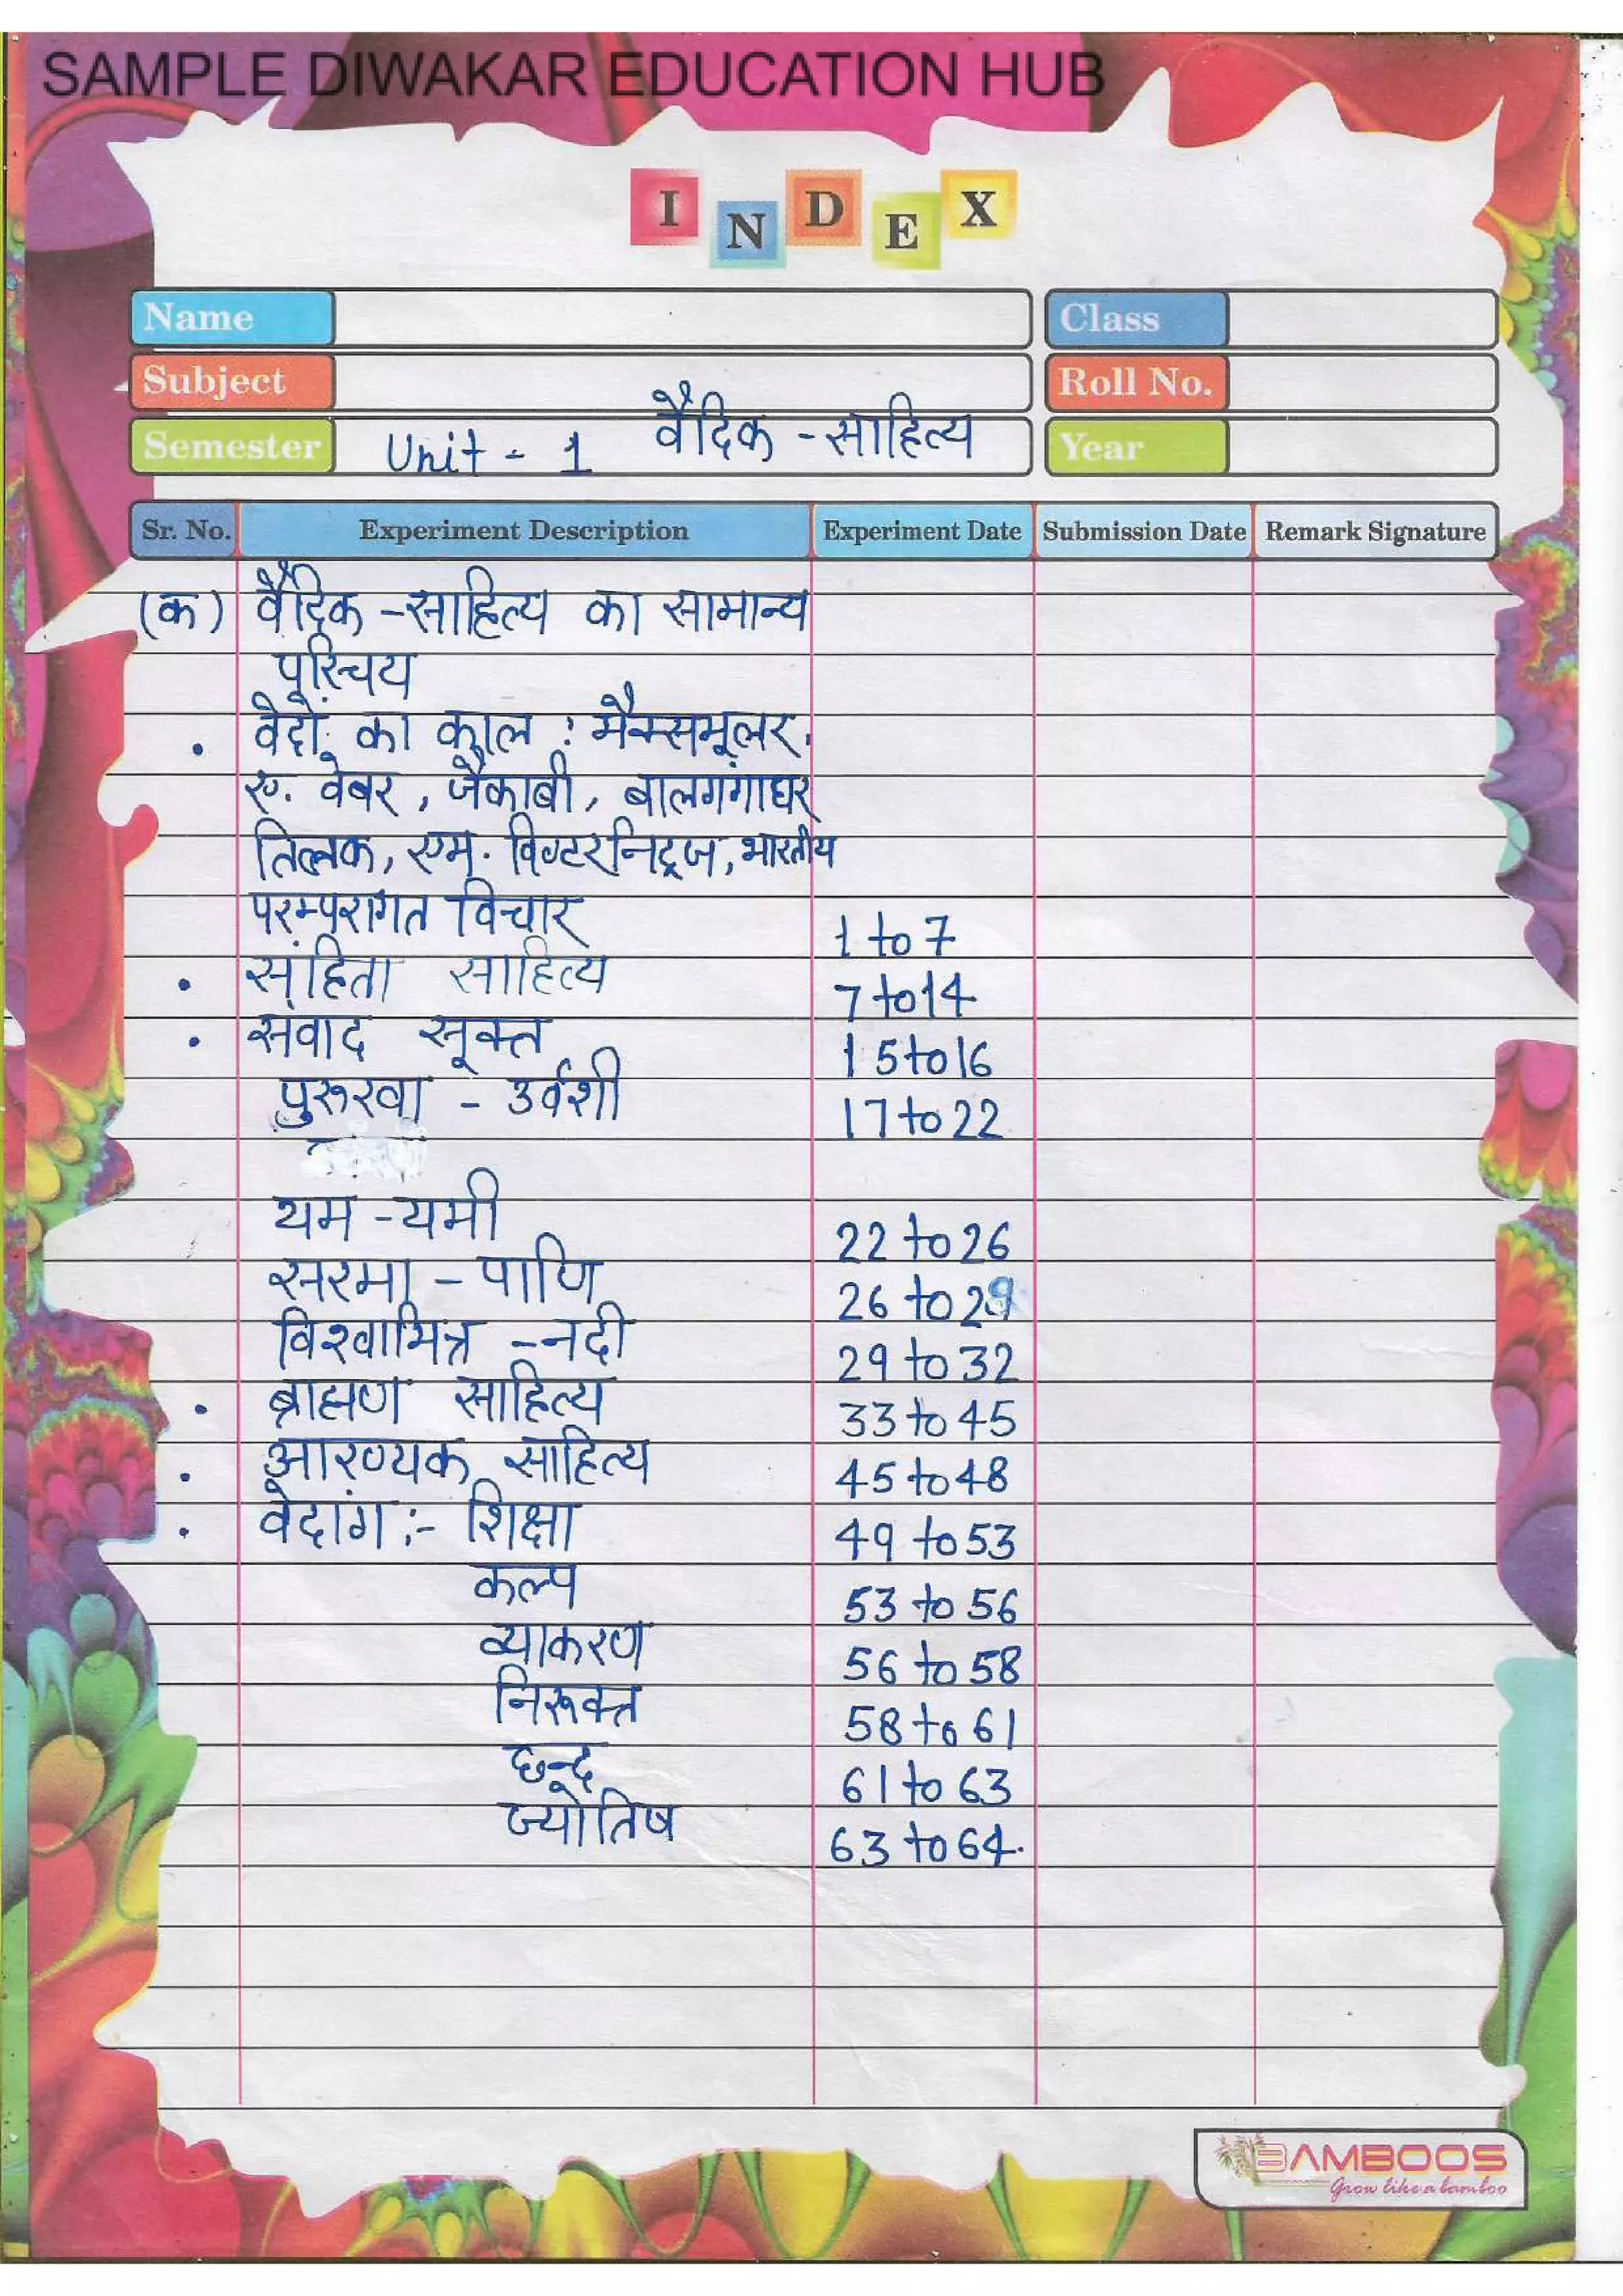 SAMPLE DIWAKAR EDUCATION HUB
INDEX
Name
Class
Subject
Roll No.
Semester Unit - 1 वैदिक - साहित्य
Year
Sr. No. Experiment Description Experiment Date Submission Date Remark Signature
(क) वैदिक - साहित्य का सामान्य
परिचय
. वेदों का काल : मैक्समूलर,
ए. वेबर, जैकाबी, बालगंगाधर
तिलक, एम. विण्टरनिट्ज, भारतीय
परम्परागत विचार 1 to 7
. संहिता साहित्य 7 to 14
. संवाद सूक्त 15 to 16
पुरूरवा - उर्वशी 17 to 22
यम - यमी 22 to 26
सरमा - पाणि 26 to 29
विश्वामित्र - नदी 29 to 32
. ब्राह्मण साहित्य 33 to 45
. आरण्यक साहित्य 45 to 48
. वेदांग :- शिक्षा 49 to 53
कल्प 53 to 56
व्याकरण 56 to 58
निरूक्त 58 to 61
छन्द 61 to 63
ज्योतिष 63 to 64.
BAMBOOS
Grow like a bamboo